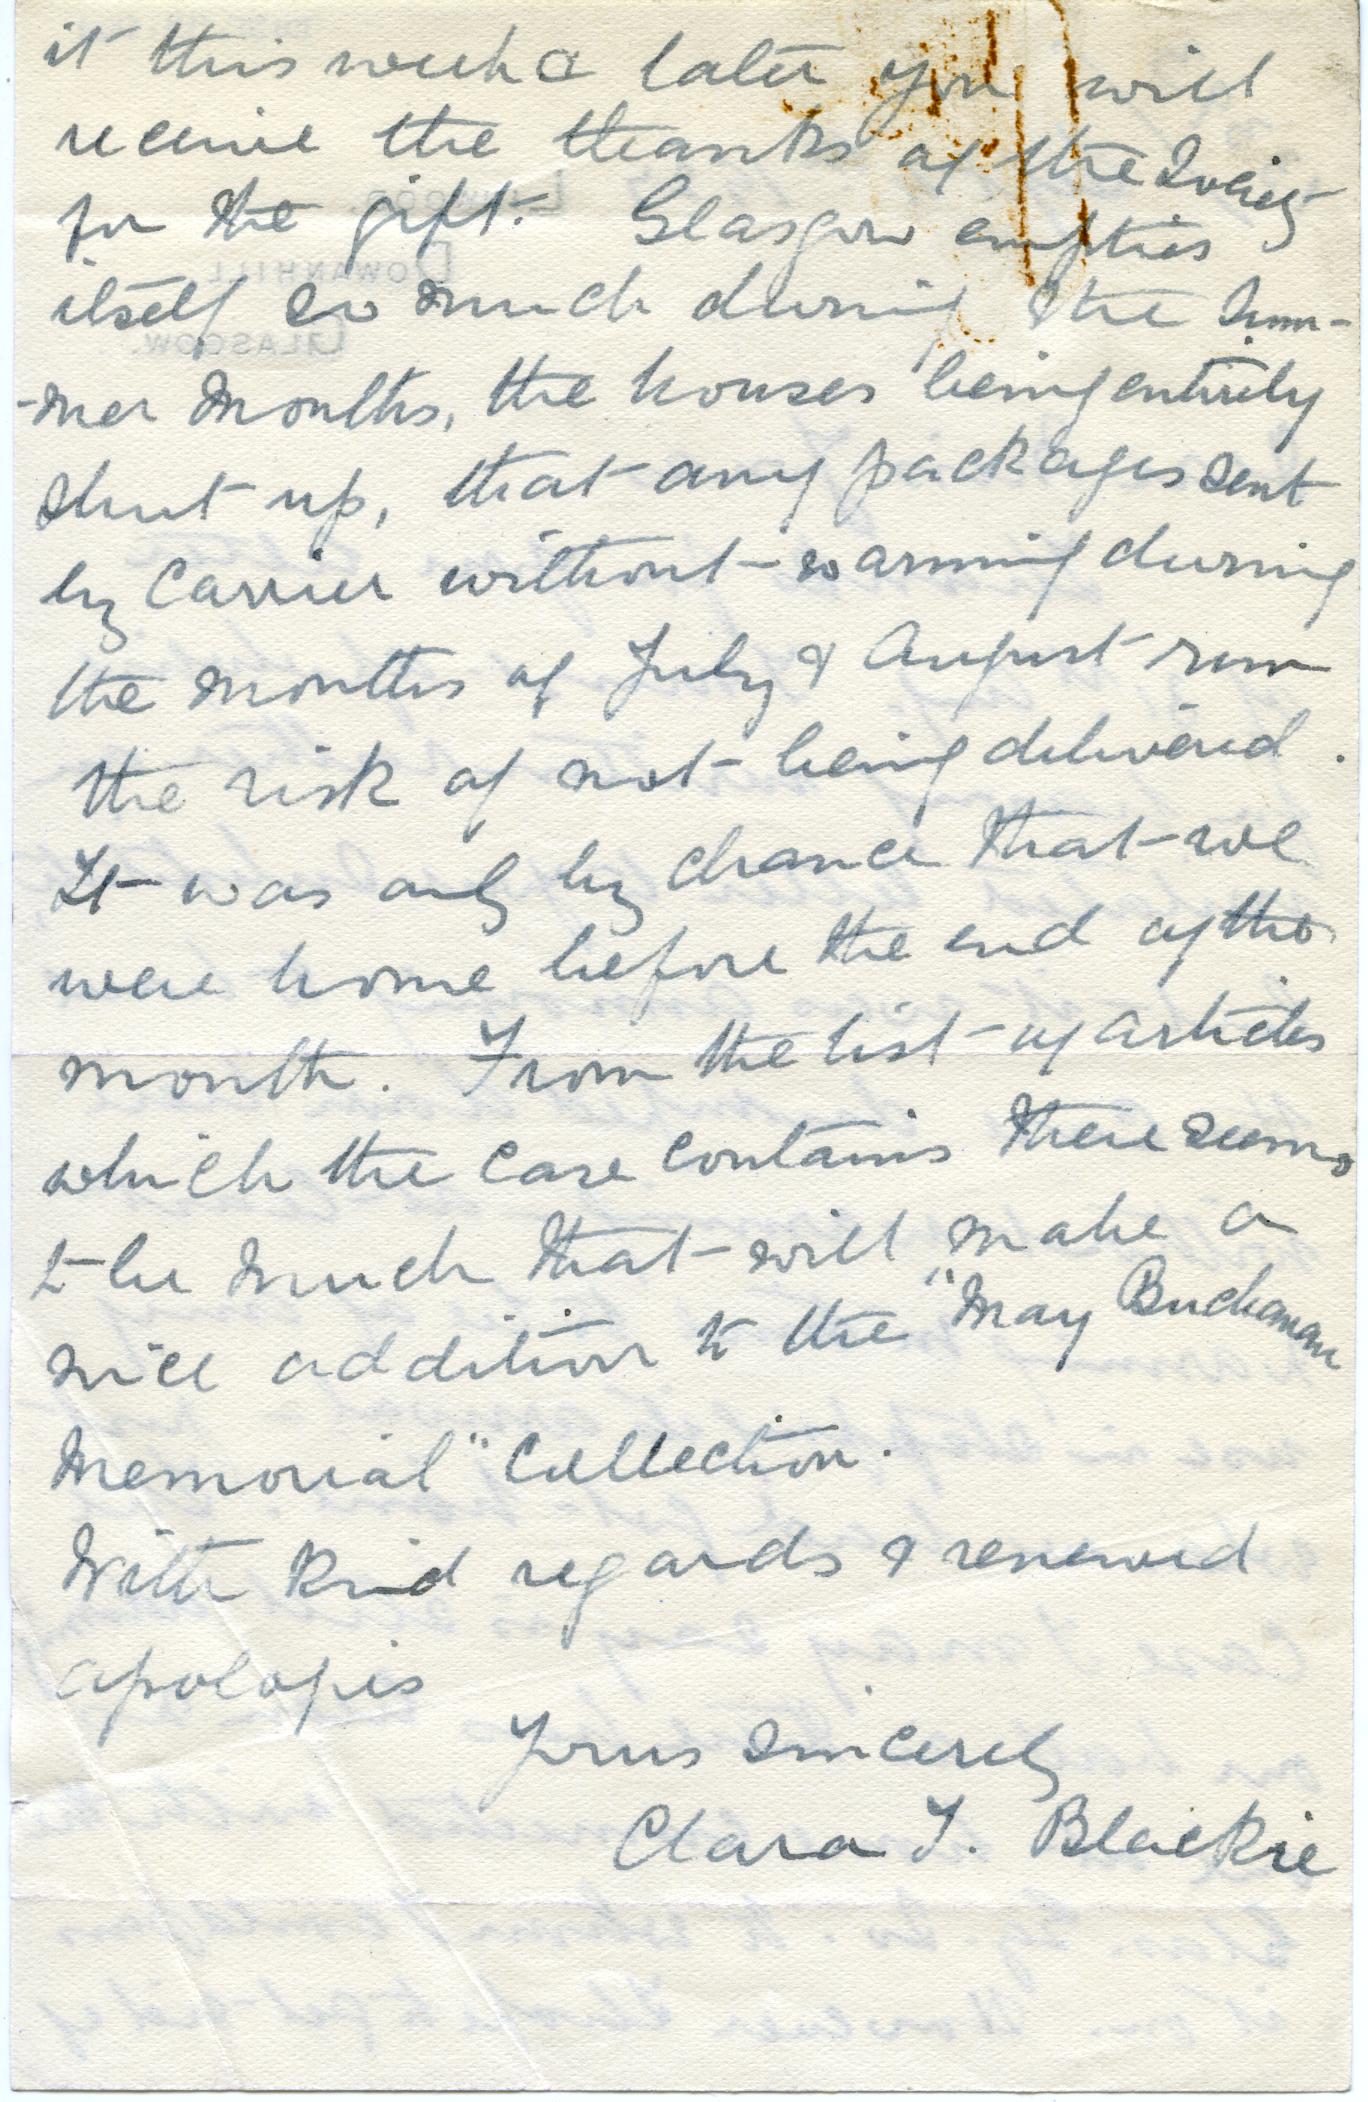 it this week & later you will
receive the thanks of the Society
for the gift. Glasgow empties
itself so much during the sum-
-mer months, the houses being entirely
shut up, that any packages sent
by Carrier without warning during
the months of July & August run
the risk of not being delivered.
It was only by chance that we
were home before the end of the
month. From the list of articles
which the case contains there seems
to be much that will make a
nice addition to the "May Buchanan
Memorial" Collection.
With kind regards & renewed
apologies
Yours sincerely
Clara T. Blackie